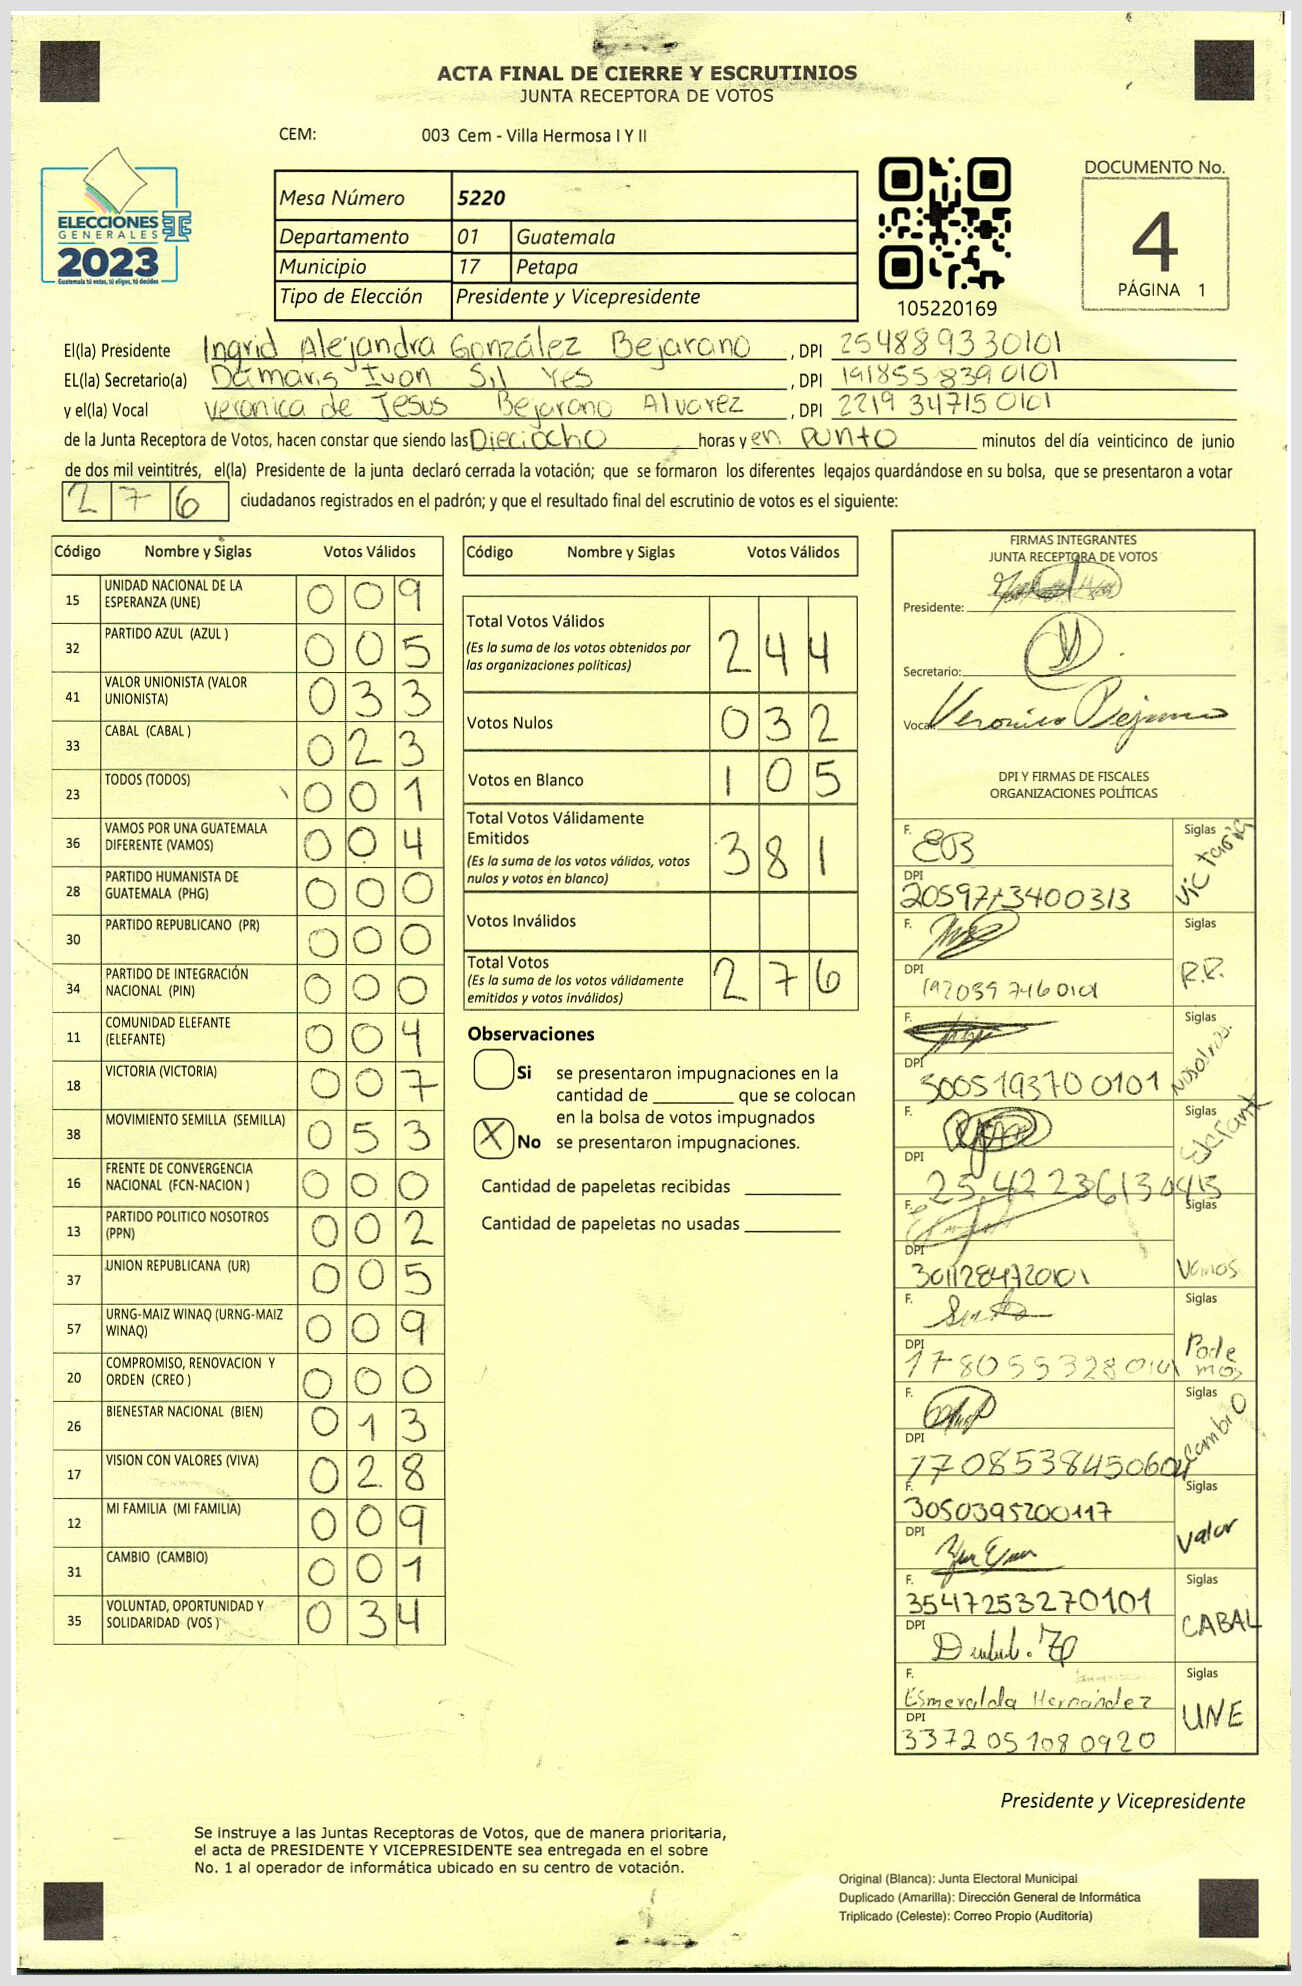 ACTA FINAL DE CIERRE Y ESCRUTINIOS
JUNTA RECEPTORA DE VOTOS
CEM: 003 Cem - Villa Hermosa I Y II
ELECCIONES
GENERALES
2023
Guatemala tú votas, tú eliges, tú decides
Mesa Número 5220
Departamento 01 Guatemala
Municipio 17 Petapa
Tipo de Elección Presidente y Vicepresidente
105220169
DOCUMENTO No.
4
PÁGINA 1
El(la) Presidente Ingrid Alejandra González Bejarano, DPI 254889330101
EL(la) Secretario(a) Damaris Ivon Sil Yes, DPI 1918558390101
y el(la) Vocal Veronica de Jesus Bejarano Alvarez, DPI 2219347150101
de la Junta Receptora de Votos, hacen constar que siendo las Dieciocho horas y en punto minutos del día veinticinco de junio
de dos mil veintitrés, el(la) Presidente de la junta declaró cerrada la votación; que se formaron los diferentes legajos quardándose en su bolsa, que se presentaron a votar
276 ciudadanos registrados en el padrón; y que el resultado final del escrutinio de votos es el siguiente:
Código Nombre y Siglas Votos Válidos
15 UNIDAD NACIONAL DE LA ESPERANZA (UNE) 009
32 PARTIDO AZUL (AZUL ) 005
41 VALOR UNIONISTA (VALOR UNIONISTA) 033
33 CABAL (CABAL ) 023
23 TODOS (TODOS) 001
36 VAMOS POR UNA GUATEMALA DIFERENTE (VAMOS) 004
28 PARTIDO HUMANISTA DE GUATEMALA (PHG) 000
30 PARTIDO REPUBLICANO (PR) 000
34 PARTIDO DE INTEGRACIÓN NACIONAL (PIN) 000
11 COMUNIDAD ELEFANTE (ELEFANTE) 004
18 VICTORIA (VICTORIA) 007
38 MOVIMIENTO SEMILLA (SEMILLA) 053
16 FRENTE DE CONVERGENCIA NACIONAL (FCN-NACION ) 000
13 PARTIDO POLITICO NOSOTROS (PPN) 002
37 UNION REPUBLICANA (UR) 005
57 URNG-MAIZ WINAQ (URNG-MAIZ WINAQ) 009
20 COMPROMISO, RENOVACION Y ORDEN (CREO ) 000
26 BIENESTAR NACIONAL (BIEN) 013
17 VISION CON VALORES (VIVA) 028
12 MI FAMILIA (MI FAMILIA) 009
31 CAMBIO (CAMBIO) 001
35 VOLUNTAD, OPORTUNIDAD Y SOLIDARIDAD (VOS ) 034
Código Nombre y Siglas Votos Válidos
Total Votos Válidos 244
(Es la suma de los votos obtenidos por
las organizaciones políticas)
Votos Nulos 032
Votos en Blanco 105
Total Votos Válidamente
Emitidos 381
(Es la suma de los votos válidos, votos
nulos y votos en blanco)
Votos Inválidos
Total Votos 276
(Es la suma de los votos válidamente
emitidos y votos inválidos)
Observaciones
Si se presentaron impugnaciones en la
cantidad de ________ que se colocan
en la bolsa de votos impugnados
X No se presentaron impugnaciones.
Cantidad de papeletas recibidas
Cantidad de papeletas no usadas
FIRMAS INTEGRANTES
JUNTA RECEPTORA DE VOTOS
Presidente:
Secretario:
Vocal: Veronica Bejarano
DPI Y FIRMAS DE FISCALES
ORGANIZACIONES POLÍTICAS
F. EB Siglas Victoria
DPI
F. Siglas P.R.
DPI 1920397160101
F. Siglas Nosotros.
DPI 3005193700101
F. Siglas Elefante
DPI 2542236130413
F. Siglas Vamos
DPI 3011284720101
F. Siglas Podemos
DPI 1780553280101
F. Siglas Cambio
DPI 1708538450604
F. 3050395200117 Siglas Valor
DPI
F. 3547253270101 Siglas CABAL
DPI
F. Esmeralda Hernández Siglas UNE
DPI 3372051080920
Presidente y Vicepresidente
Se instruye a las Juntas Receptoras de Votos, que de manera prioritaria,
el acta de PRESIDENTE Y VICEPRESIDENTE sea entregada en el sobre
No. 1 al operador de informática ubicado en su centro de votación.
Original (Blanca): Junta Electoral Municipal
Duplicado (Amarilla): Dirección General de Informática
Triplicado (Celeste): Correo Propio (Auditoría)